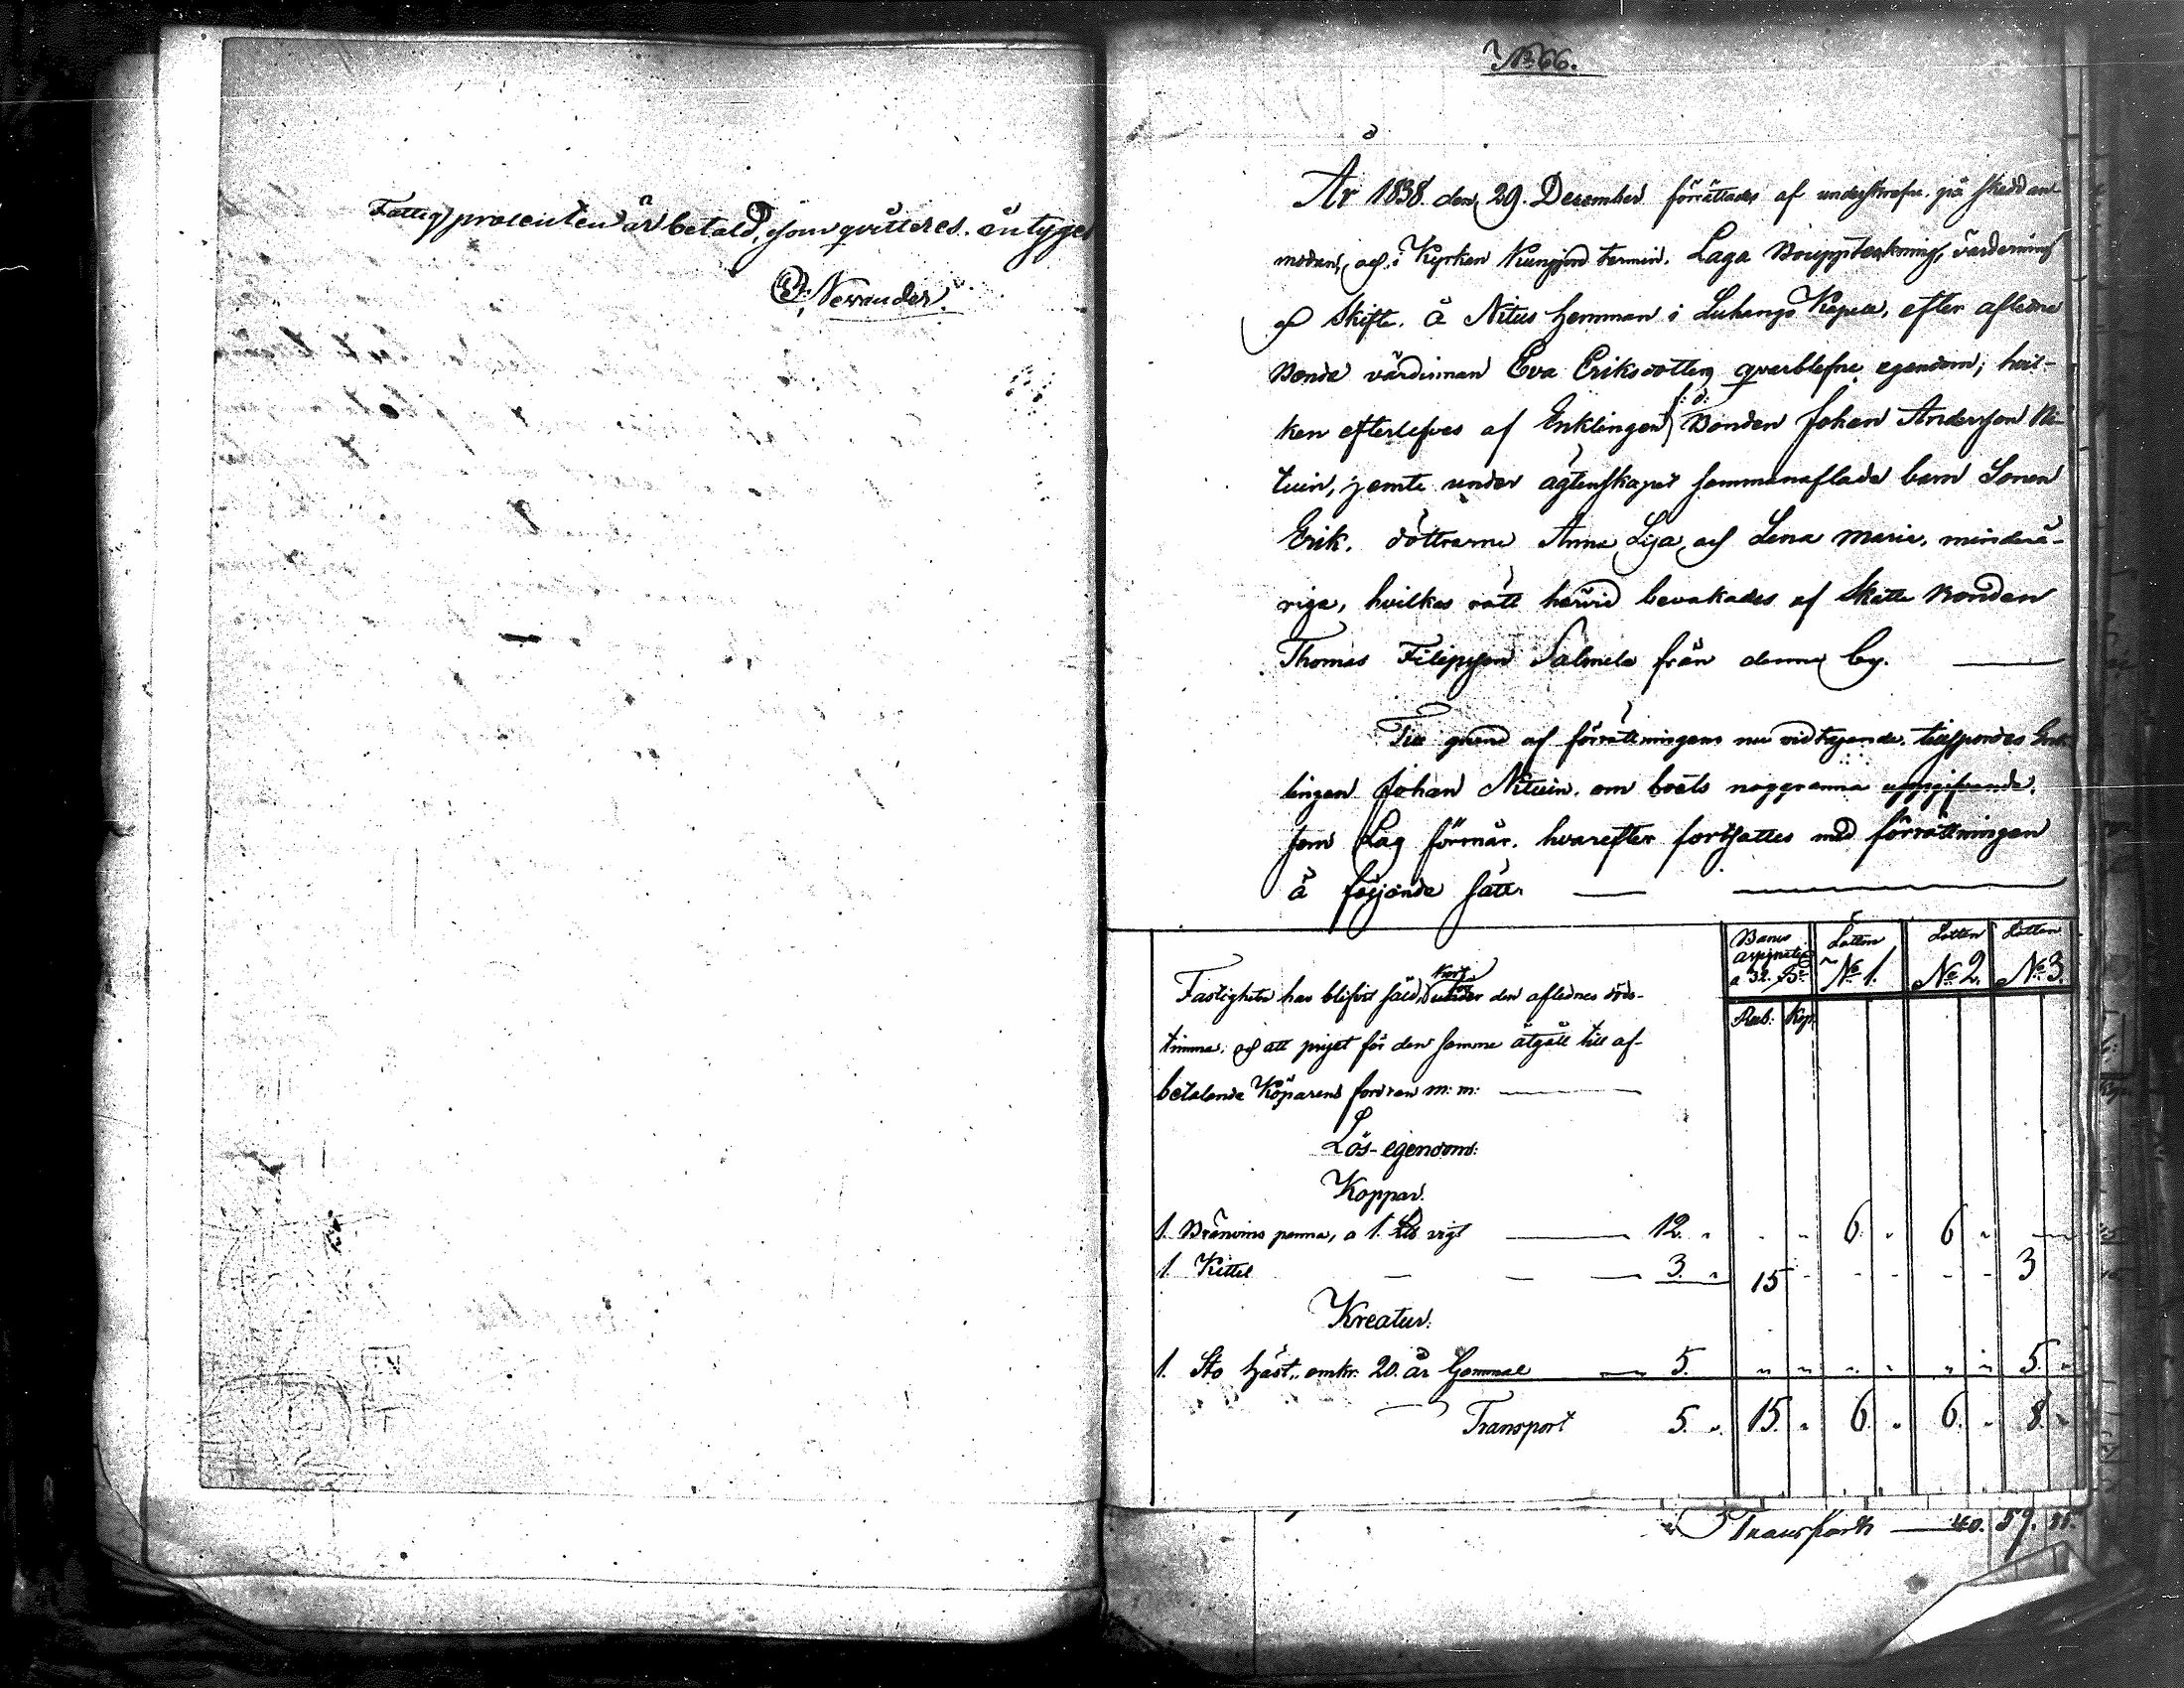 Fattigprocenten är betald, som qvitteres. än tyges
Nerander.
No 66.
År 1838 den 29. December förrättades af underskrefne på skedd an-
modan, och i Kyrkan Kungjord termin. Laga Bouppteckning, värdering
och Skifte. å Nitus hemman i Luhango Kapell, efter aflidne
Bonde värdinnan Eva Eriksdotters qvarblefne egendom; hvil-
ken efterlefves af Enklingen f: d: Bonden Johan Andersson Ni-
tuin, jemte under ägtenskapet sammanaflade barn Sonen
Erik. döttrarne Anna Lisa och Lena Maria. minderå-
riga, hvilkas rätt härvid bevakades af Skatte Bonden
Thomas Filipsson Salmela från denne by.
Till grund af förrättningens nu vidtagande. tillspordes Enk-
lingen Johan Nituin. om boets noggranna uppgifvande.
som Lag förmår. hvarefter fortsattes med förrättningen
å följande sätt.
Banco assignatio a 32. Lotten No 1. Lotten No 2. Lotten No 3.
Rub. Kop.
Fastigheten har blifvit såld kort under den aflednes döds-
timma. och att priset för den samma åtgått till af-
betalande Köparens fordran m: m:
Lös-egendom:
Koppar.
1. Bränvins panna, a 1. vigt 12. " " " 6. " 6 "
1. Kittel 3. " 15 - - - - - 3
Kreatur.
1. Sto häst, omkr. 20. år Gammal 5. " " " " " " 5. "
Transport 5. " 15. " 6. " 6. " 8. "
Transport 40. 57. 55.